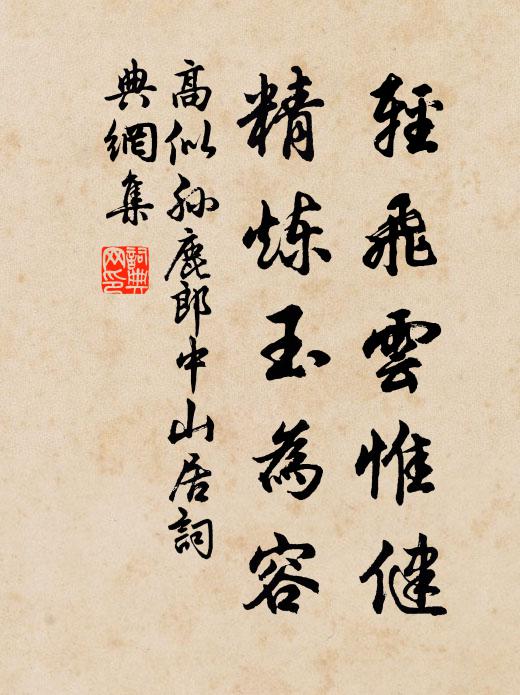 輕飛雲惟健
精炼玉為容
高似孙鹿郎中山居詞
典網集
詞典
网印